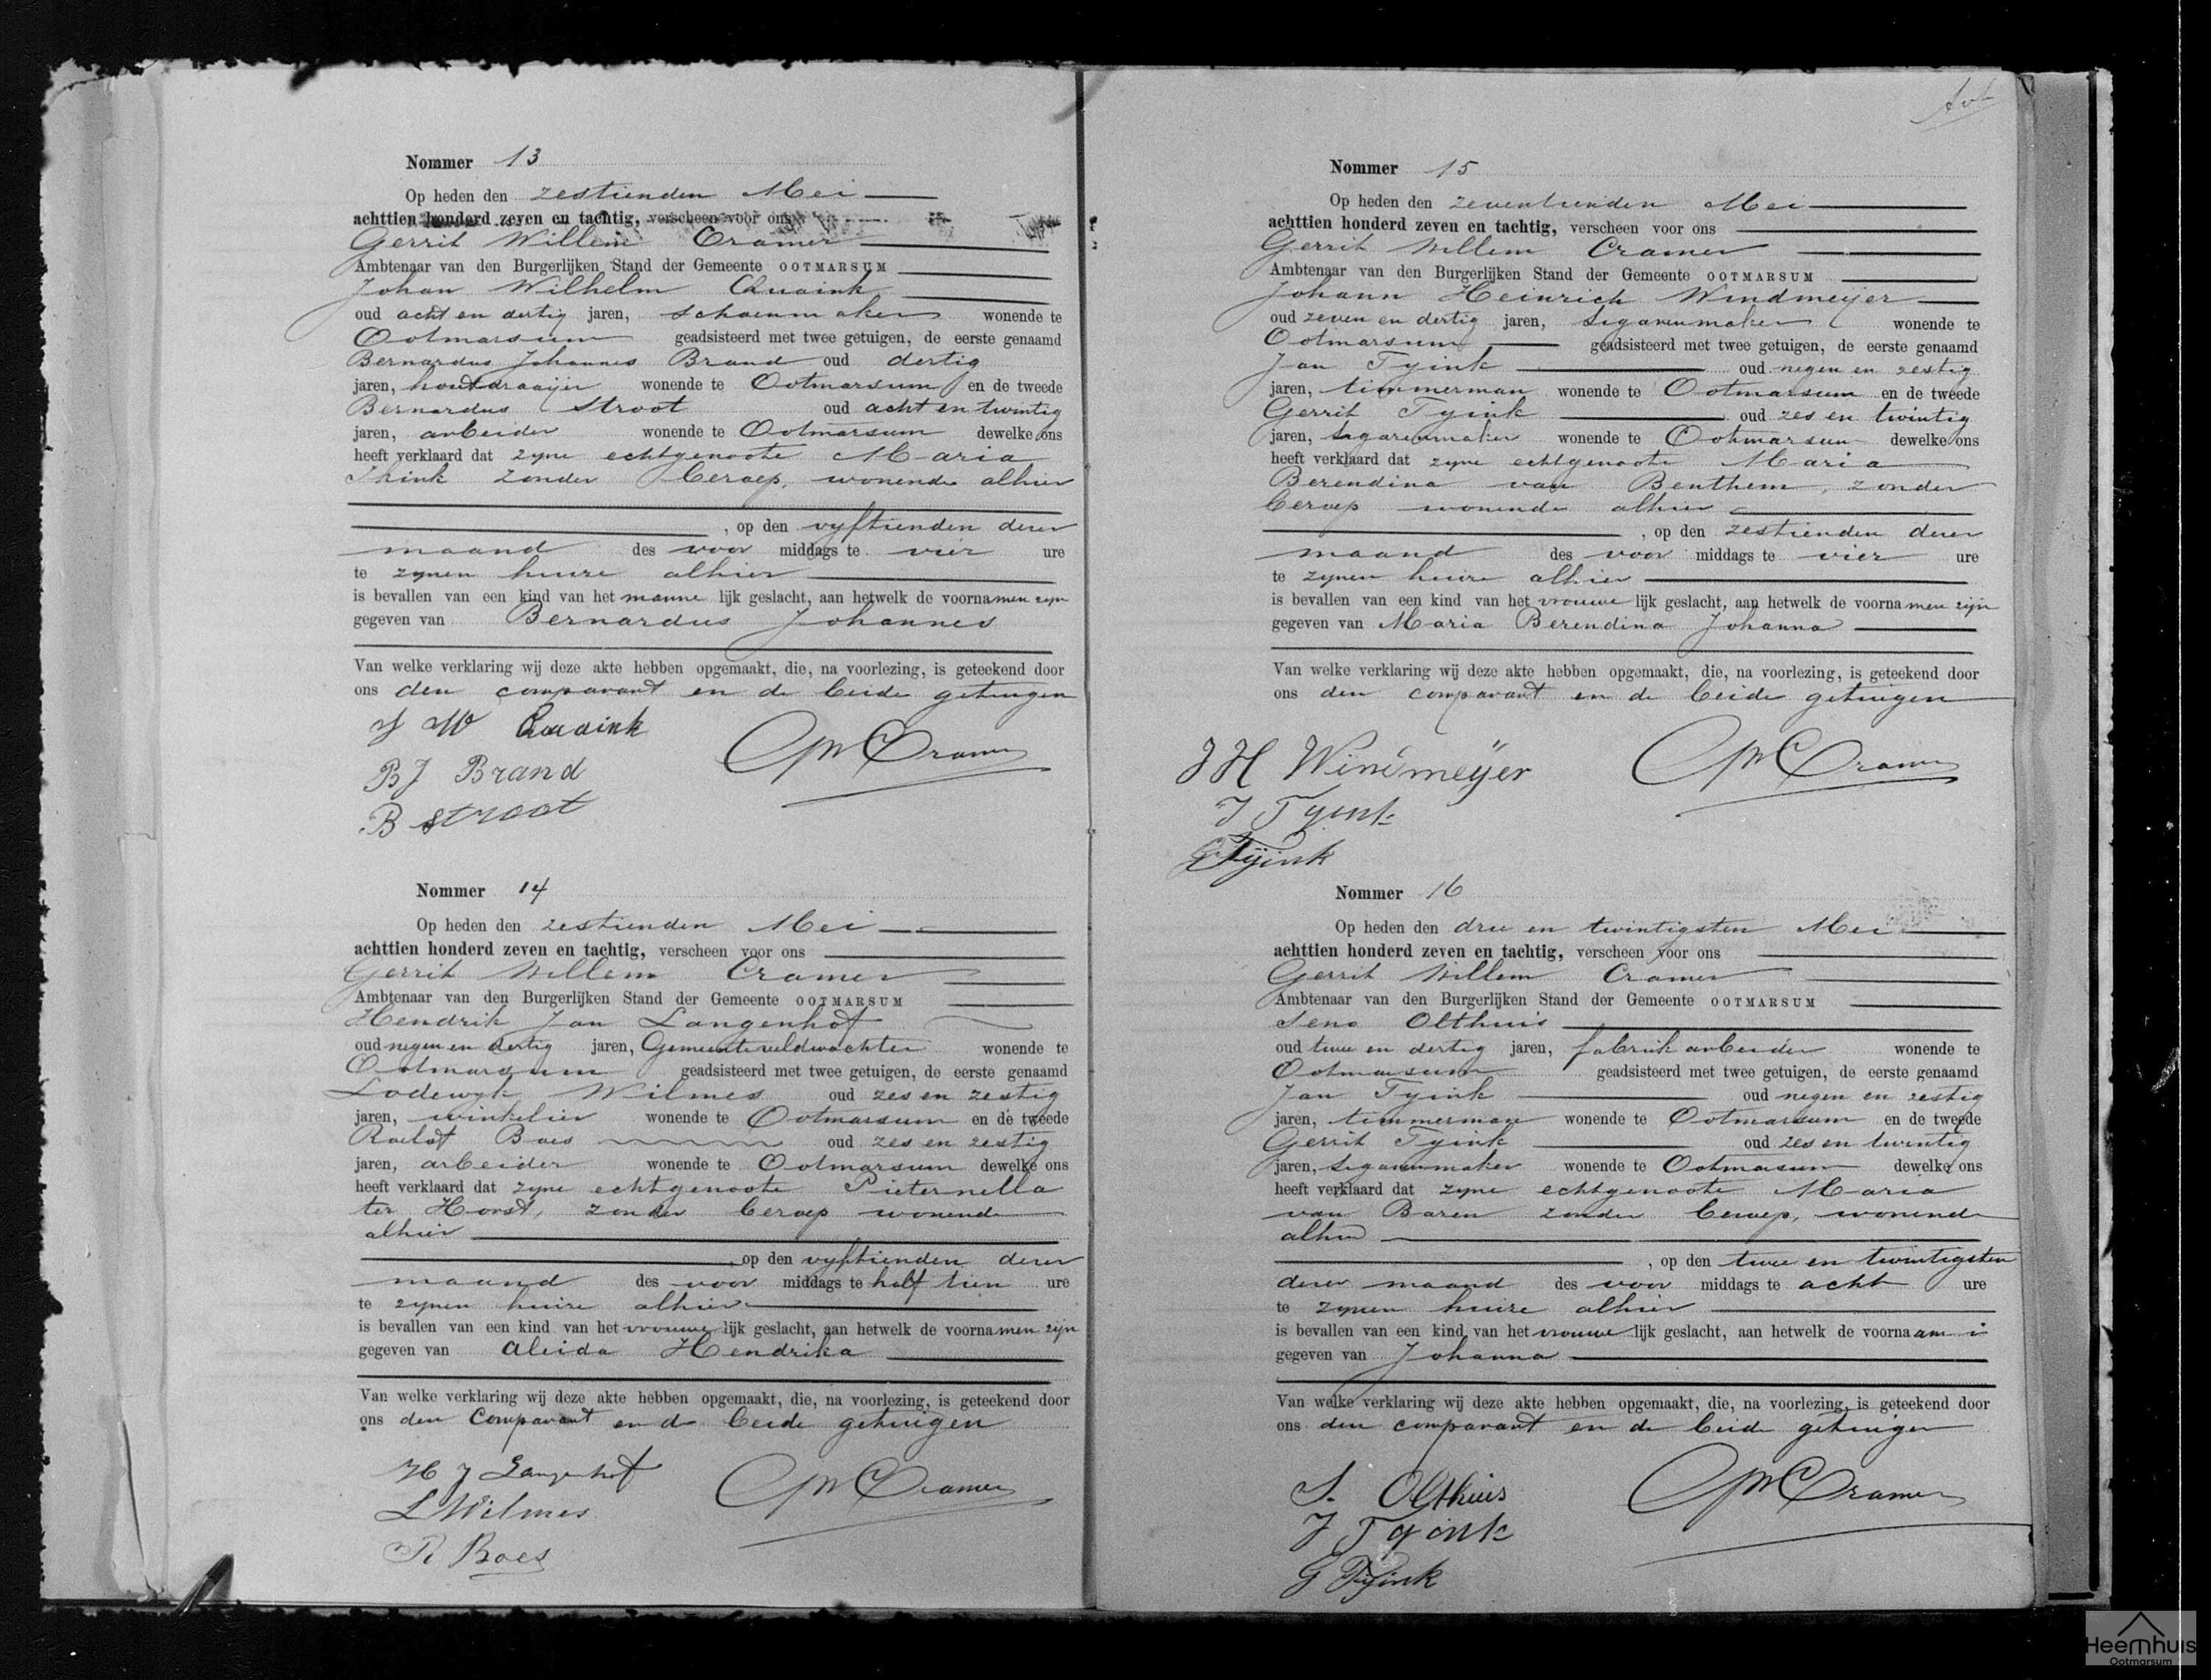 Nommer 13
Op heden den zestienden Mei
achttien honderd zeven en tachtig, verscheen voor ons
Gerrit Willem Cramer
Ambtenaar van den Burgerlijken Stand der Gemeente OOTMARSUM
Johan Wilhelm Quaink
oud acht en dertig jaren, schoenmaker wonende te
Ootmarsum geadsisteerd met twee getuigen, de eerste genaamd
Bernardus Johannes Brand oud dertig
jaren, houtdraaijer wonende te Ootmarsum en de tweede
Bernardus Stroot oud acht en twintig
jaren, arbeider wonende te Ootmarsum dewelke ons
heeft verklaard dat zyne echtgenoote Maria
zonder beroep, wonende alhier
, op den vyftienden dezer
maand des voor middags te vier ure
te zynen huize alhier
is bevallen van een kind van het manne lijk geslacht, aan hetwelk de voornamen zijn
gegeven van Bernardus Johannes
Van welke verklaring wij deze akte hebben opgemaakt, die, na voorlezing, is geteekend door
ons den comparant en de beide getuigen
J W Quaink
GW Cramer
BJ Brand
B Stroot
Nommer 14
Op heden den zestienden Mei
achttien honderd zeven en tachtig, verscheen voor ons
Gerrit Willem Cramer
Ambtenaar van den Burgerlijken Stand der Gemeente OOTMARSUM
Hendrik Jan Langenhof
oud negen en dertig jaren, Gemeenteveldwachter wonende te
Ootmarsum geadsisteerd met twee getuigen, de eerste genaamd
Lodewyk Wilmes oud zes en zestig
jaren, winkelier wonende te Ootmarsum en de tweede
Roelof Boes oud zes en zestig
jaren, arbeider wonende te Ootmarsum dewelke ons
heeft verklaard dat zyne echtgenoote Pieternella
ter Horst, zonder beroep wonende
alhier
, op den vyftienden dezer
maand des voor middags te half tien ure
te zynen huize alhier
is bevallen van een kind van het vrouwe lijk geslacht, aan hetwelk de voornamen zijn
gegeven van Aleida Hendrika
Van welke verklaring wij deze akte hebben opgemaakt, die, na voorlezing, is geteekend door
ons den Comparant en de beide getuigen
H J Langenhof
GW Cramer
L Wilmes
R Boes
Nommer 15
Op heden den zeventienden Mei
achttien honderd zeven en tachtig, verscheen voor ons
Gerrit Willem Cramer
Ambtenaar van den Burgerlijken Stand der Gemeente OOTMARSUM
Johann Heinrich Windmeyer
oud zeven en dertig jaren, sigarenmaker wonende te
Ootmarsum geadsisteerd met twee getuigen, de eerste genaamd
Jan Tyink oud negen en zestig
jaren, timmerman wonende te Ootmarsum en de tweede
Gerrit Tyink oud zes en twintig
jaren, sigarenmaker wonende te Ootmarsum dewelke ons
heeft verklaard dat zyne echtgenoote Maria
Berendina van Benthem, zonder
beroep wonende alhier
, op den zestienden dezer
maand des voor middags te vier ure
te zynen huize alhier
is bevallen van een kind van het vrouwe lijk geslacht, aan hetwelk de voornamen zijn
gegeven van Maria Berendina Johanna
Van welke verklaring wij deze akte hebben opgemaakt, die, na voorlezing, is geteekend door
ons den comparant en de beide getuigen
J H Windmeyer
GW Cramer
J Tyink
G Tyink
Nommer 16
Op heden den drie en twintigsten Mei
achttien honderd zeven en tachtig, verscheen voor ons
Gerrit Willem Cramer
Ambtenaar van den Burgerlijken Stand der Gemeente OOTMARSUM
Seno Olthuis
oud twee en dertig jaren, fabriekarbeider wonende te
Ootmarsum geadsisteerd met twee getuigen, de eerste genaamd
Jan Tyink oud negen en zestig
jaren, timmerman wonende te Ootmarsum en de tweede
Gerrit Tyink oud zes en twintig
jaren, sigarenmaker wonende te Ootmarsum dewelke ons
heeft verklaard dat zyne echtgenoote Maria
van Baren zonder beroep, wonende
alhier
, op den twee en twintigsten
dezer maand des voor middags te acht ure
te zynen huize alhier
is bevallen van een kind van het vrouwe lijk geslacht, aan hetwelk de voornaam is
gegeven van Johanna
Van welke verklaring wij deze akte hebben opgemaakt, die, na voorlezing, is geteekend door
ons den comparant en de beide getuigen
S. Olthuis
GW Cramer
J Tyink
G Tyink
Heemhuis
Ootmarsum